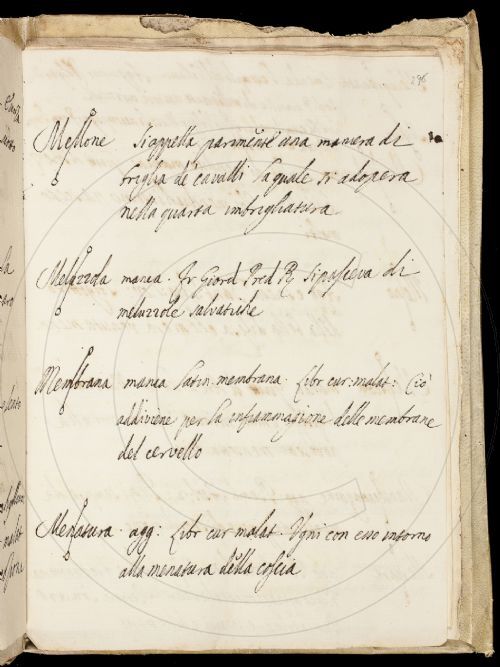 296
Mellone si appella parimente una maniera di
briglia de' cavalli la quale si adopera
nella quarta imbrigliatura
Meluzzola manca. Fr Giord Pred R Si pasceva di
meluzzole salvatiche
Membrana manca latin membrana. Libr cur: malat: Ciò
addiviene per la enfiammagione delle membrane
del cervello
Menatura. agg: Libr cur malat. Ugni con esso intorno
alla menatura della coscia